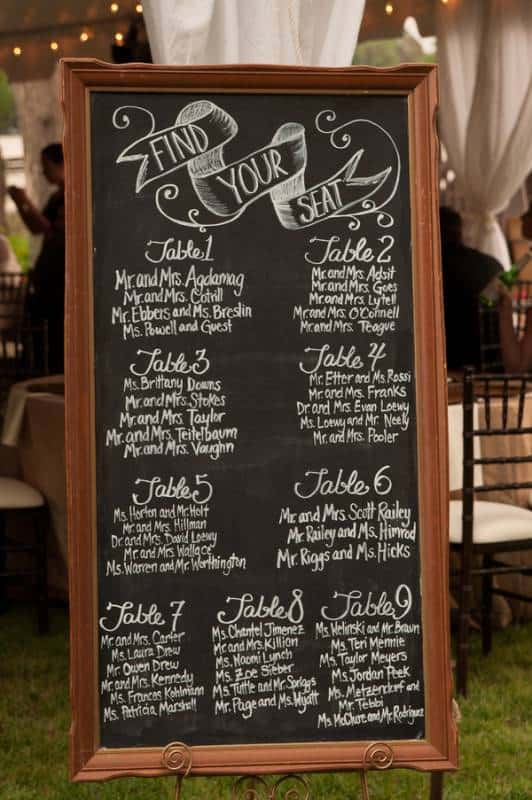 FIND YOUR SEAT
Table 1
Mr. and Mrs. Agdamag
Mr. and Mrs. Cotrill
Mr. Ebbers and Ms. Breslin
Ms. Powell and Guest
Table 2
Mr. and Mrs. Adsit
Mr. and Mrs. Goes
Mr. and Mrs. Lytell
Mr. and Mrs. O'Connell
Mr. and Mrs. Teague
Table 3
Ms. Brittany Downs
Mr. and Mrs. Stokes
Mr. and Mrs. Taylor
Mr. and Mrs. Teitelbaum
Mr. and Mrs. Vaughn
Table 4
Mr. Etter and Ms. Rossi
Mr. and Mrs. Franks
Dr. and Mrs. Evan Loewy
Ms. Loewy and Mr. Neely
Mr. and Mrs. Pooler
Table 5
Ms. Horton and Mr. Holt
Mr. and Mrs. Hillman
Dr. and Mrs. David Loewy
Mr. and Mrs. Wallace
Ms. Warren and Mr. Worthington
Table 6
Mr. and Mrs. Scott Railey
Mr. Railey and Ms. Himrod
Mr. Riggs and Ms. Hicks
Table 7
Mr. and Mrs. Carter
Ms. Laura Drew
Mr. Owen Drew
Mr. and Mrs. Kennedy
Ms. Frances Kohlmann
Ms. Patricia Marshall
Table 8
Ms. Chantel Jimenez
Mr. and Mrs. Killion
Ms. Naomi Lynch
Ms. Zoe Sieber
Ms. Tuttle and Mr. Spriggs
Mr. Page and Ms. Wyatt
Table 9
Ms. Welinski and Mr. Braun
Ms. Teri Mennie
Ms. Taylor Meyers
Ms. Jordan Peek
Ms. Metzendorf and
Mr. Tebbi
Ms. McClure and Mr. Rodriguez